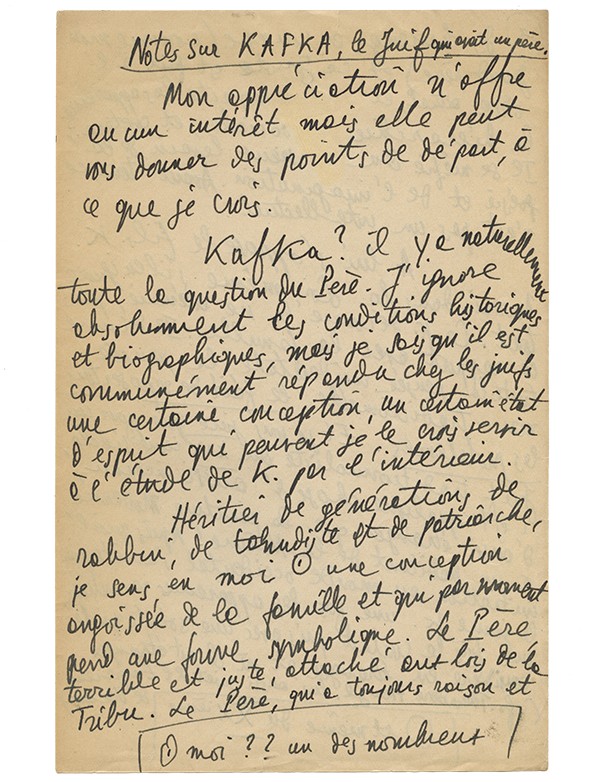 Notes sur KAFKA, le Juif qui avait un père.
Mon appréciation n'offre
aucun intérêt mais elle peut
vous donner des points de départ, à
ce que je crois.
Kafka? il y a naturellement
toute la question du Père. J'ignore
absolument les conditions historiques
et biographiques, mais je sais qu'il est
communément répandu chez les juifs
une certaine conception, un certain état
d'esprit qui peuvent je le crois servir
à l'étude de K. par l'intérieur.
Héritier de générations de
rabbin, de talmudiste et de patriarche,
je sens en moi ① une conception
angoissée de la famille et qui par moment
prend une forme symbolique. Le Père,
terrible et juste, attaché aux lois de la
Tribu. Le Père, qui a toujours raison et
① moi ?? un des nombreux